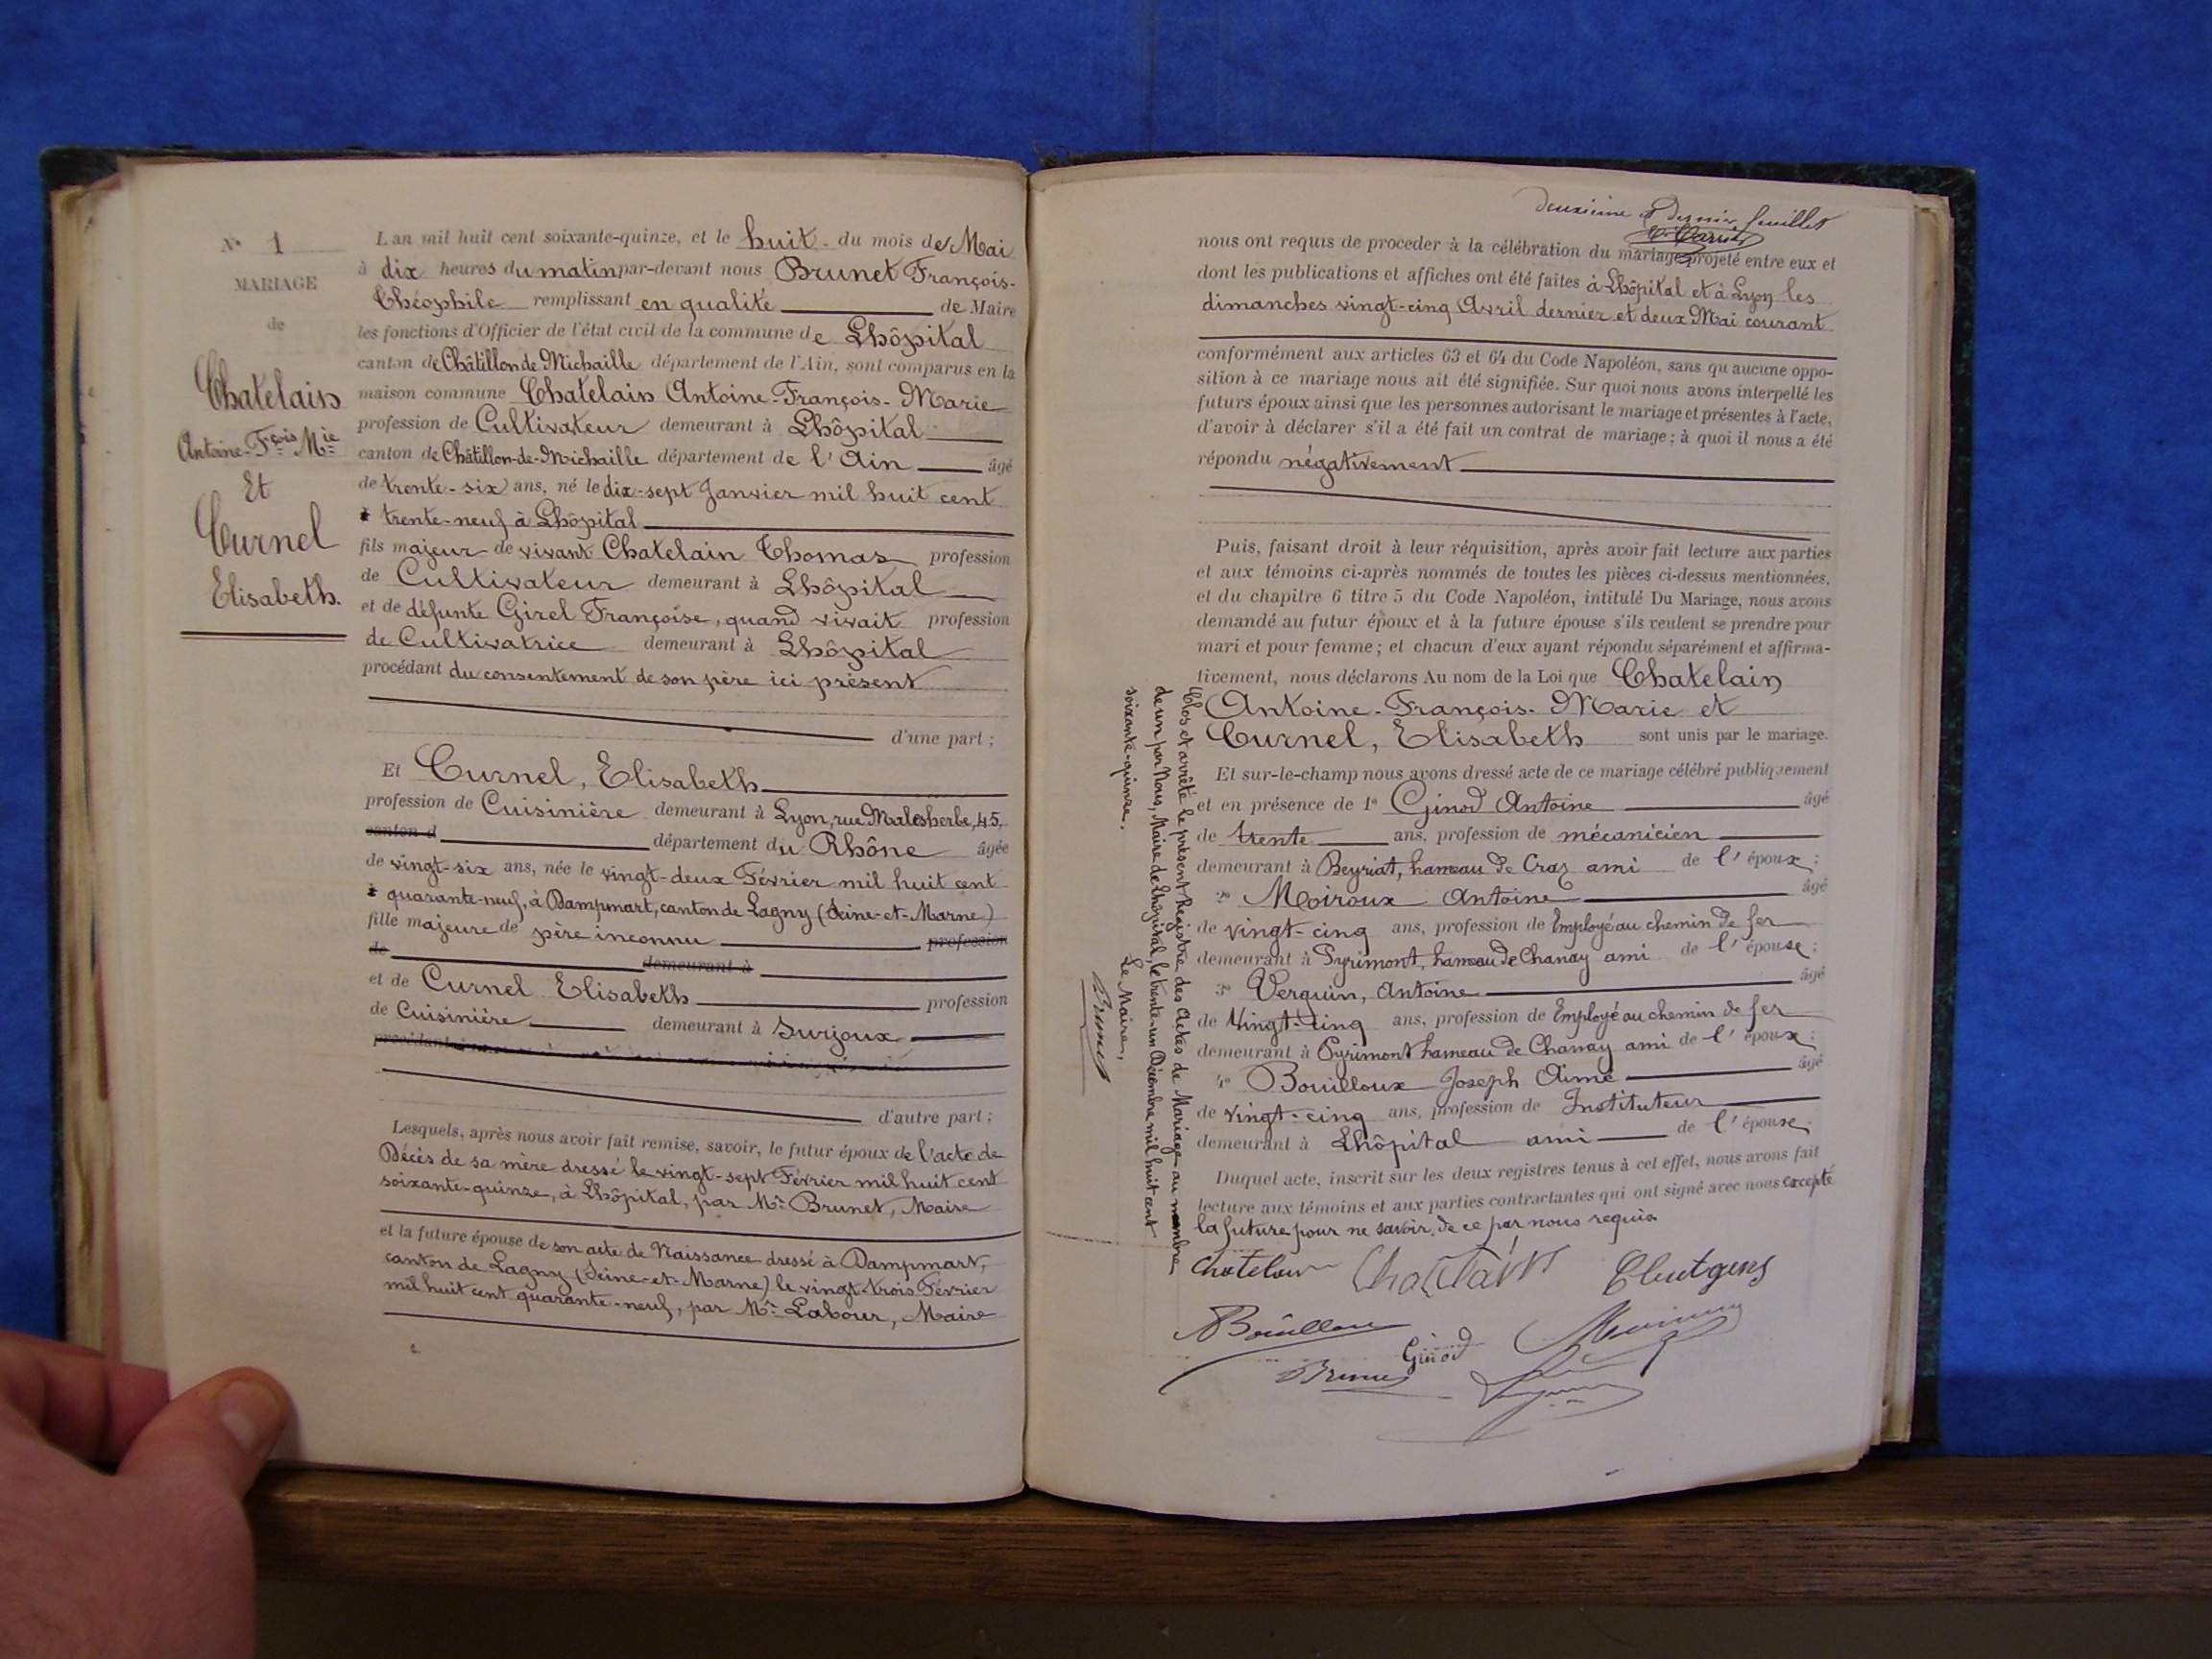 N° 1
MARIAGE
de
Chatelain
Antoine-Fçois Mie
Et
Curnel
Elisabeth.
L'an mil huit cent soixante-quinze, et le huit du mois de Mai
à dix heures du matin par-devant nous Brunet François-
Théophile remplissant en qualité de Maire
les fonctions d'Officier de l'état civil de la commune de Lhôpital
canton de Châtillon de Michaille département de l'Ain, sont comparus en la
maison commune Chatelain Antoine-François-Marie
profession de Cultivateur demeurant à Lhôpital
canton de Châtillon-de-Michaille département de l'Ain âgé
de trente-six ans, né le dix-sept Janvier mil huit cent
trente-neuf à Lhôpital
fils majeur de vivant Chatelain Thomas profession
de Cultivateur demeurant à Lhôpital
et de défunte Girel Françoise, quand vivait profession
de Cultivatrice demeurant à Lhôpital
procédant du consentement de son père ici présent
d'une part ;
Et Curnel, Elisabeth
profession de Cuisinière demeurant à Lyon, rue Malesherbe, 45,
canton d département du Rhône âgée
de vingt-six ans, née le vingt-deux Février mil huit cent
quarante-neuf, à Dampmart, canton de Lagny (Seine-et-Marne)
fille majeure de père inconnu profession
de demeurant à
et de Curnel Elisabeth profession
de Cuisinière demeurant à Surjoux
procédant
d'autre part ;
Lesquels, après nous avoir fait remise, savoir, le futur époux de l'acte de
Décès de sa mère dressé le vingt-sept Février mil huit cent
soixante-quinze, à Lhôpital, par Mr Brunet, Maire
et la future épouse de son acte de Naissance dressé à Dampmart,
canton de Lagny (Seine-et-Marne) le vingt-trois Février
mil huit cent quarante-neuf, par Mr Labour, Maire
deuxième et Dernier feuillet
nous ont requis de procéder à la célébration du mariage projeté entre eux et
dont les publications et affiches ont été faites à Lhôpital et à Lyon les
dimanches vingt-cinq Avril dernier et deux Mai courant
conformément aux articles 63 et 64 du Code Napoléon, sans qu'aucune oppo-
sition à ce mariage nous ait été signifiée. Sur quoi nous avons interpellé les
futurs époux ainsi que les personnes autorisant le mariage et présentes à l'acte,
d'avoir à déclarer s'il a été fait un contrat de mariage ; à quoi il nous a été
répondu négativement
Puis, faisant droit à leur réquisition, après avoir fait lecture aux parties
et aux témoins ci-après nommés de toutes les pièces ci-dessus mentionnées,
et du chapitre 6 titre 5 du Code Napoléon, intitulé Du Mariage, nous avons
demandé au futur époux et à la future épouse s'ils veulent se prendre pour
mari et pour femme ; et chacun d'eux ayant répondu séparément et affirma-
tivement, nous déclarons Au nom de la Loi que Chatelain
Antoine-François-Marie et
Curnel, Elisabeth sont unis par le mariage.
Et sur-le-champ nous avons dressé acte de ce mariage célébré publiquement
et en présence de 1° Ginod Antoine âgé
de trente ans, profession de mécanicien
demeurant à Beyriat, hameau de Craz ami de l'époux ;
2° Moiroux Antoine âgé
de vingt-cinq ans, profession de Employé au chemin de fer
demeurant à Pyrimont, hameau de Chanay ami de l'épouse ;
3° Verguin, Antoine âgé
de Vingt-cinq ans, profession de Employé au chemin de fer
demeurant à Pyrimont hameau de Chanay ami de l'époux ;
4° Bouilloux Joseph Aimé âgé
de vingt-cinq ans, profession de Instituteur
demeurant à Lhôpital ami de l'épouse,
Duquel acte, inscrit sur les deux registres tenus à cet effet, nous avons fait
lecture aux témoins et aux parties contractantes qui ont signé avec nous excepté
la future pour ne savoir, de ce par nous requis
Chatelain Chatelain
Bouilloux
Ginod
Brunet
Clos et arrêté le présent Registre des Actes de Mariage au nombre
de un par Nous, Maire de Lhôpital, le trente-un Décembre mil huit cent
soixante-quinze.
Le Maire,
Brunet